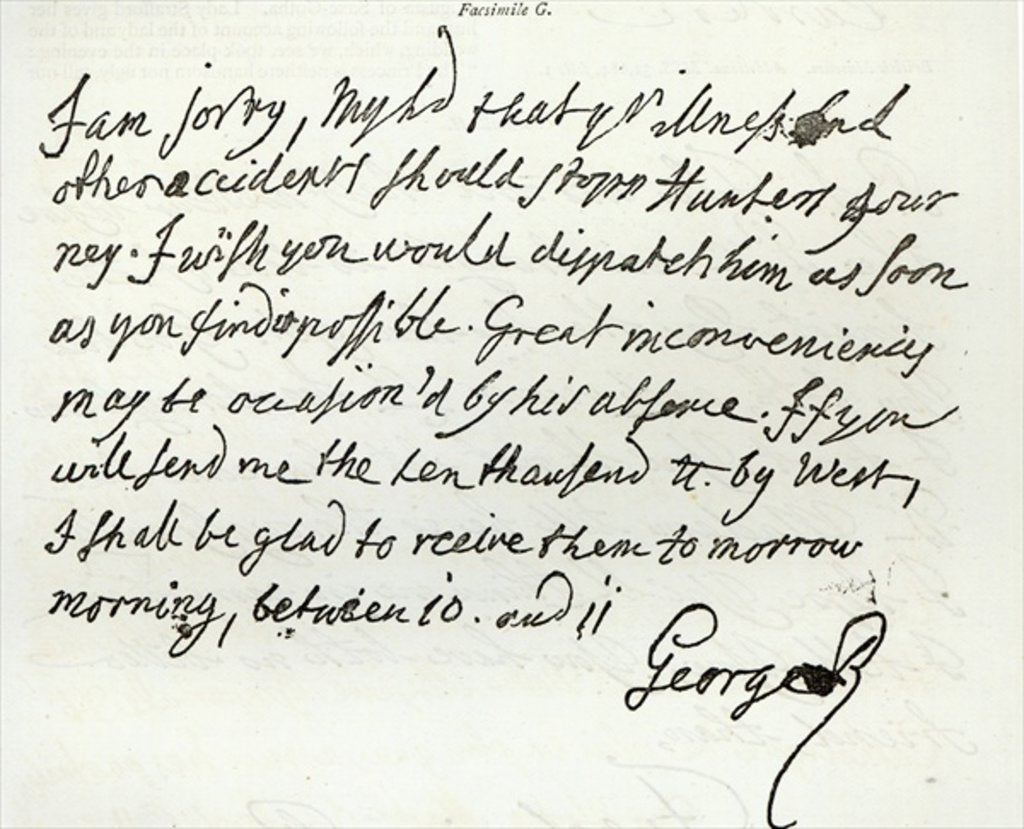 Facsimile G.
I am sorry, Myld that yr illness and
other accidents should stopp Hunters jour
ney. I wish you would dispatch him as soon
as you find it possible. Great inconveniencies
may be occasion'd by his absence. If you
will send me the ten thousend tt. by West,
I shall be glad to receive them to morrow
morning, between 10. and 11
George R